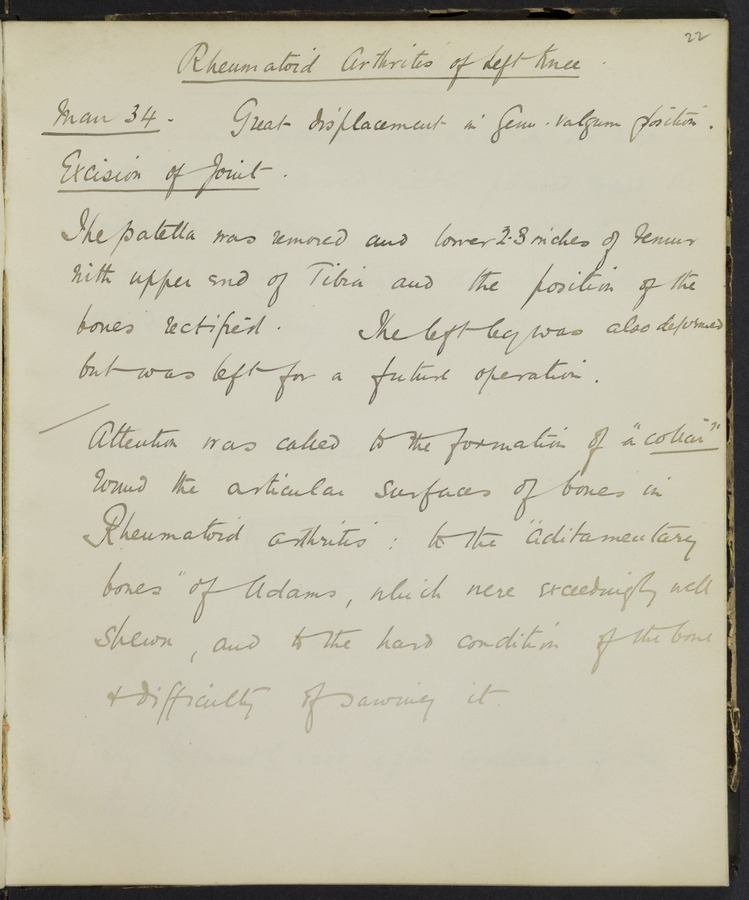 22
Rheumatoid Arthritis of Left Knee.
Man 34. Great displacement in Genu-valgum position.
Excision of Joint.
The patella was removed and lower 2-3 inches of Femur
with upper end of Tibia and the position of the
bones rectified. The left leg was also deformed
but was left for a future operation.
Attention was called to the formation of "a collar"
round the articular surfaces of bones in
Rheumatoid arthritis: to the "aditamentary
bones" of Adams, which were exceedingly well
shewn, and to the hard condition of the bone
& difficulty of sawing it.